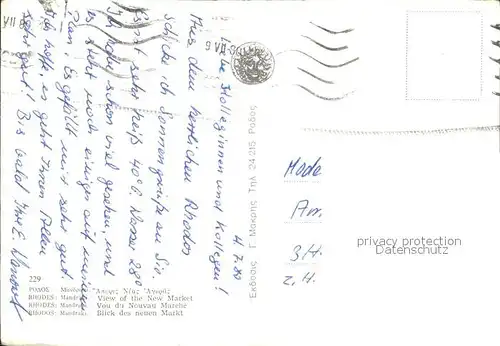 4.7.89
Liebe Kolleginnen und Kollegen!
Aus dem herrlichen Rhodos
schicke ich Sonnengrüße an Sie.
Es ist sehr heiß 40°C, Wasser 28°
Ich habe schon viel gesehen, und
es steht noch einiges auf meinem
Plan. Es gefällt mir sehr gut
Ich hoffe, es geht Ihnen Allen
sehr gut! Bis bald Ihre E.
229
ΡΟΔΟΣ: Νέας Ἀγορᾶς
RHODES: Mandraki View of the New Market
RHODES: Mandraki Vou du Nouvau Marche
RHODOS: Mandraki Blick des neuen Markt
Εκδοσις Γ. Μακρης Τηλ. 24 215 Ρόδος
Mode
Am
3 H.
2 H.
privacy protection
Datenschutz